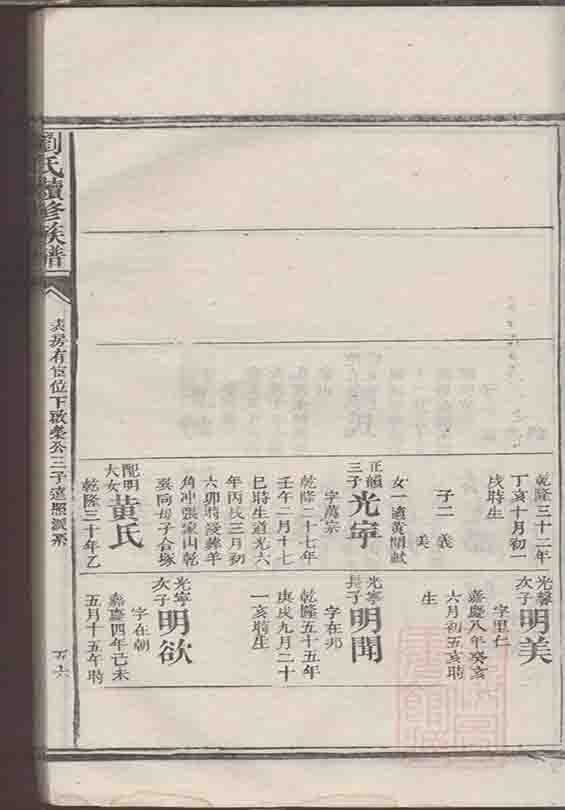 劉氏續修族譜
乾隆三十二年
丁亥十月初一
戌時生
子二 義
美
女一適黃開猷
正韻
三子
光寧
字萬宗
乾隆二十七年
壬午二月十七
巳時生道光六
年丙戌三月初
六卯時沒葬羊
角冲張家山乾
巽向母子合塚
配明
大女
黃氏
乾隆三十年乙
光馨
次子
明美
字里仁
嘉慶八年癸亥
六月初五亥時
生
光寧
長子
明聞
字在邦
乾隆五十五年
庚戌九月二十
一亥時生
光寧
次子
明欲
字在朝
嘉慶四年己未
五月十五午時